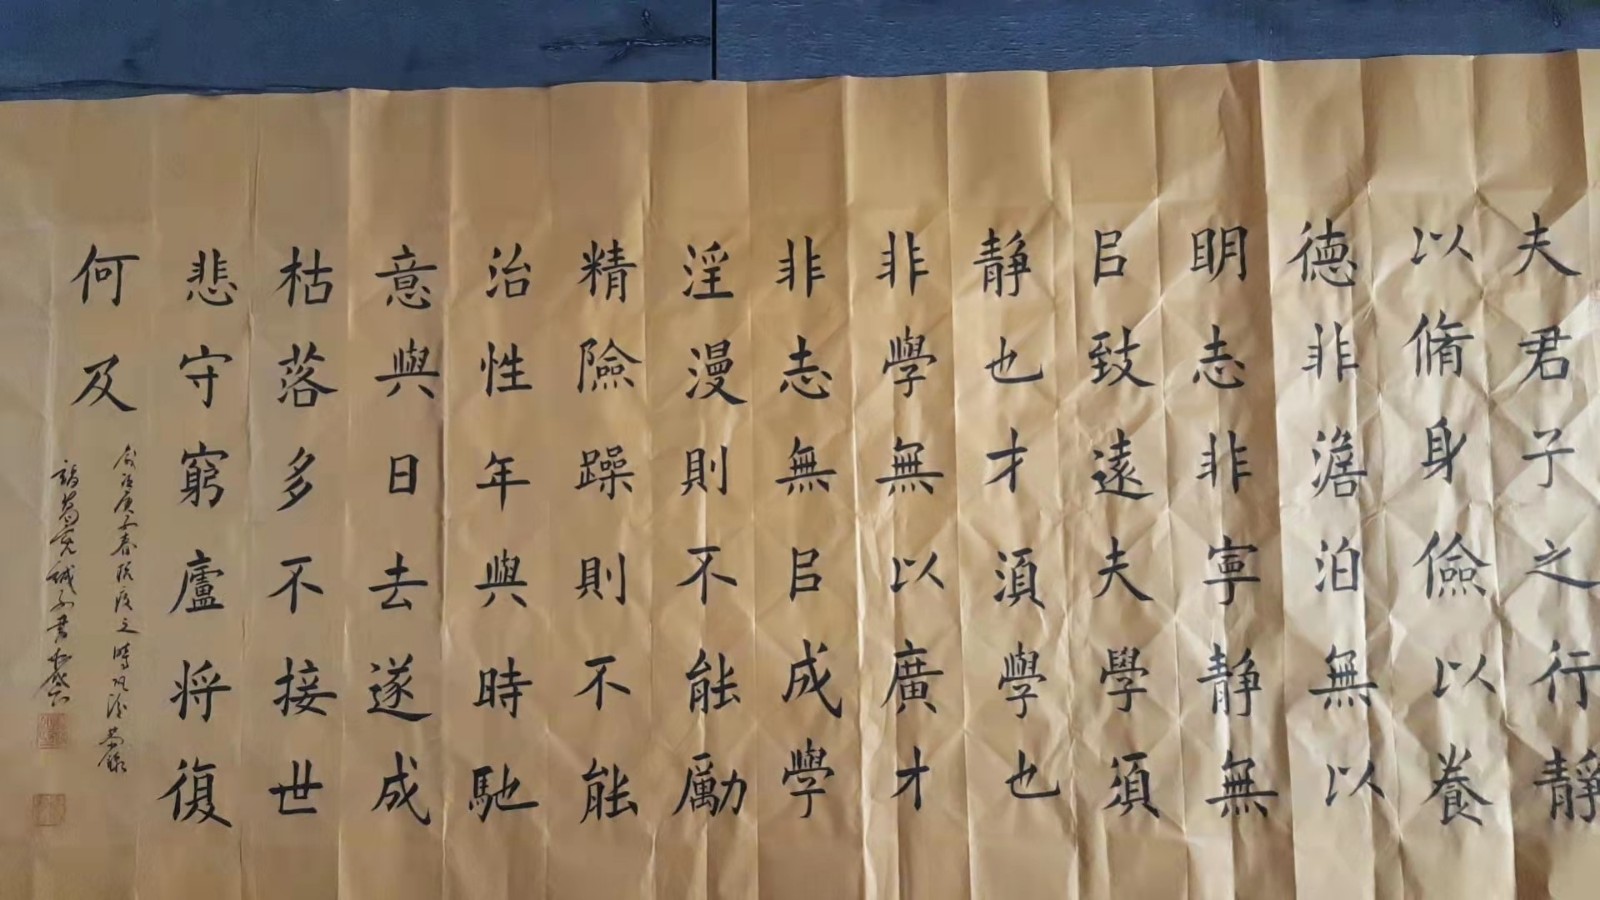 夫君子之行静
以脩身儉以養
德非澹泊無以
眀志非寧静無
㠯致遠夫學須
静也才須學也
非學無以廣才
非志無㠯成學
淫漫則不能勵
精險躁則不能
治性年與時馳
意與日去遂成
枯落多不接世
悲守窮廬将復
何及
歲次庚子春之時
諸葛亮誡子書